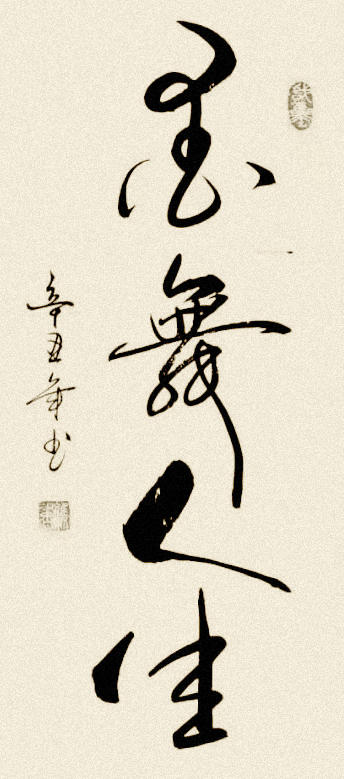 舞人生
辛丑年书